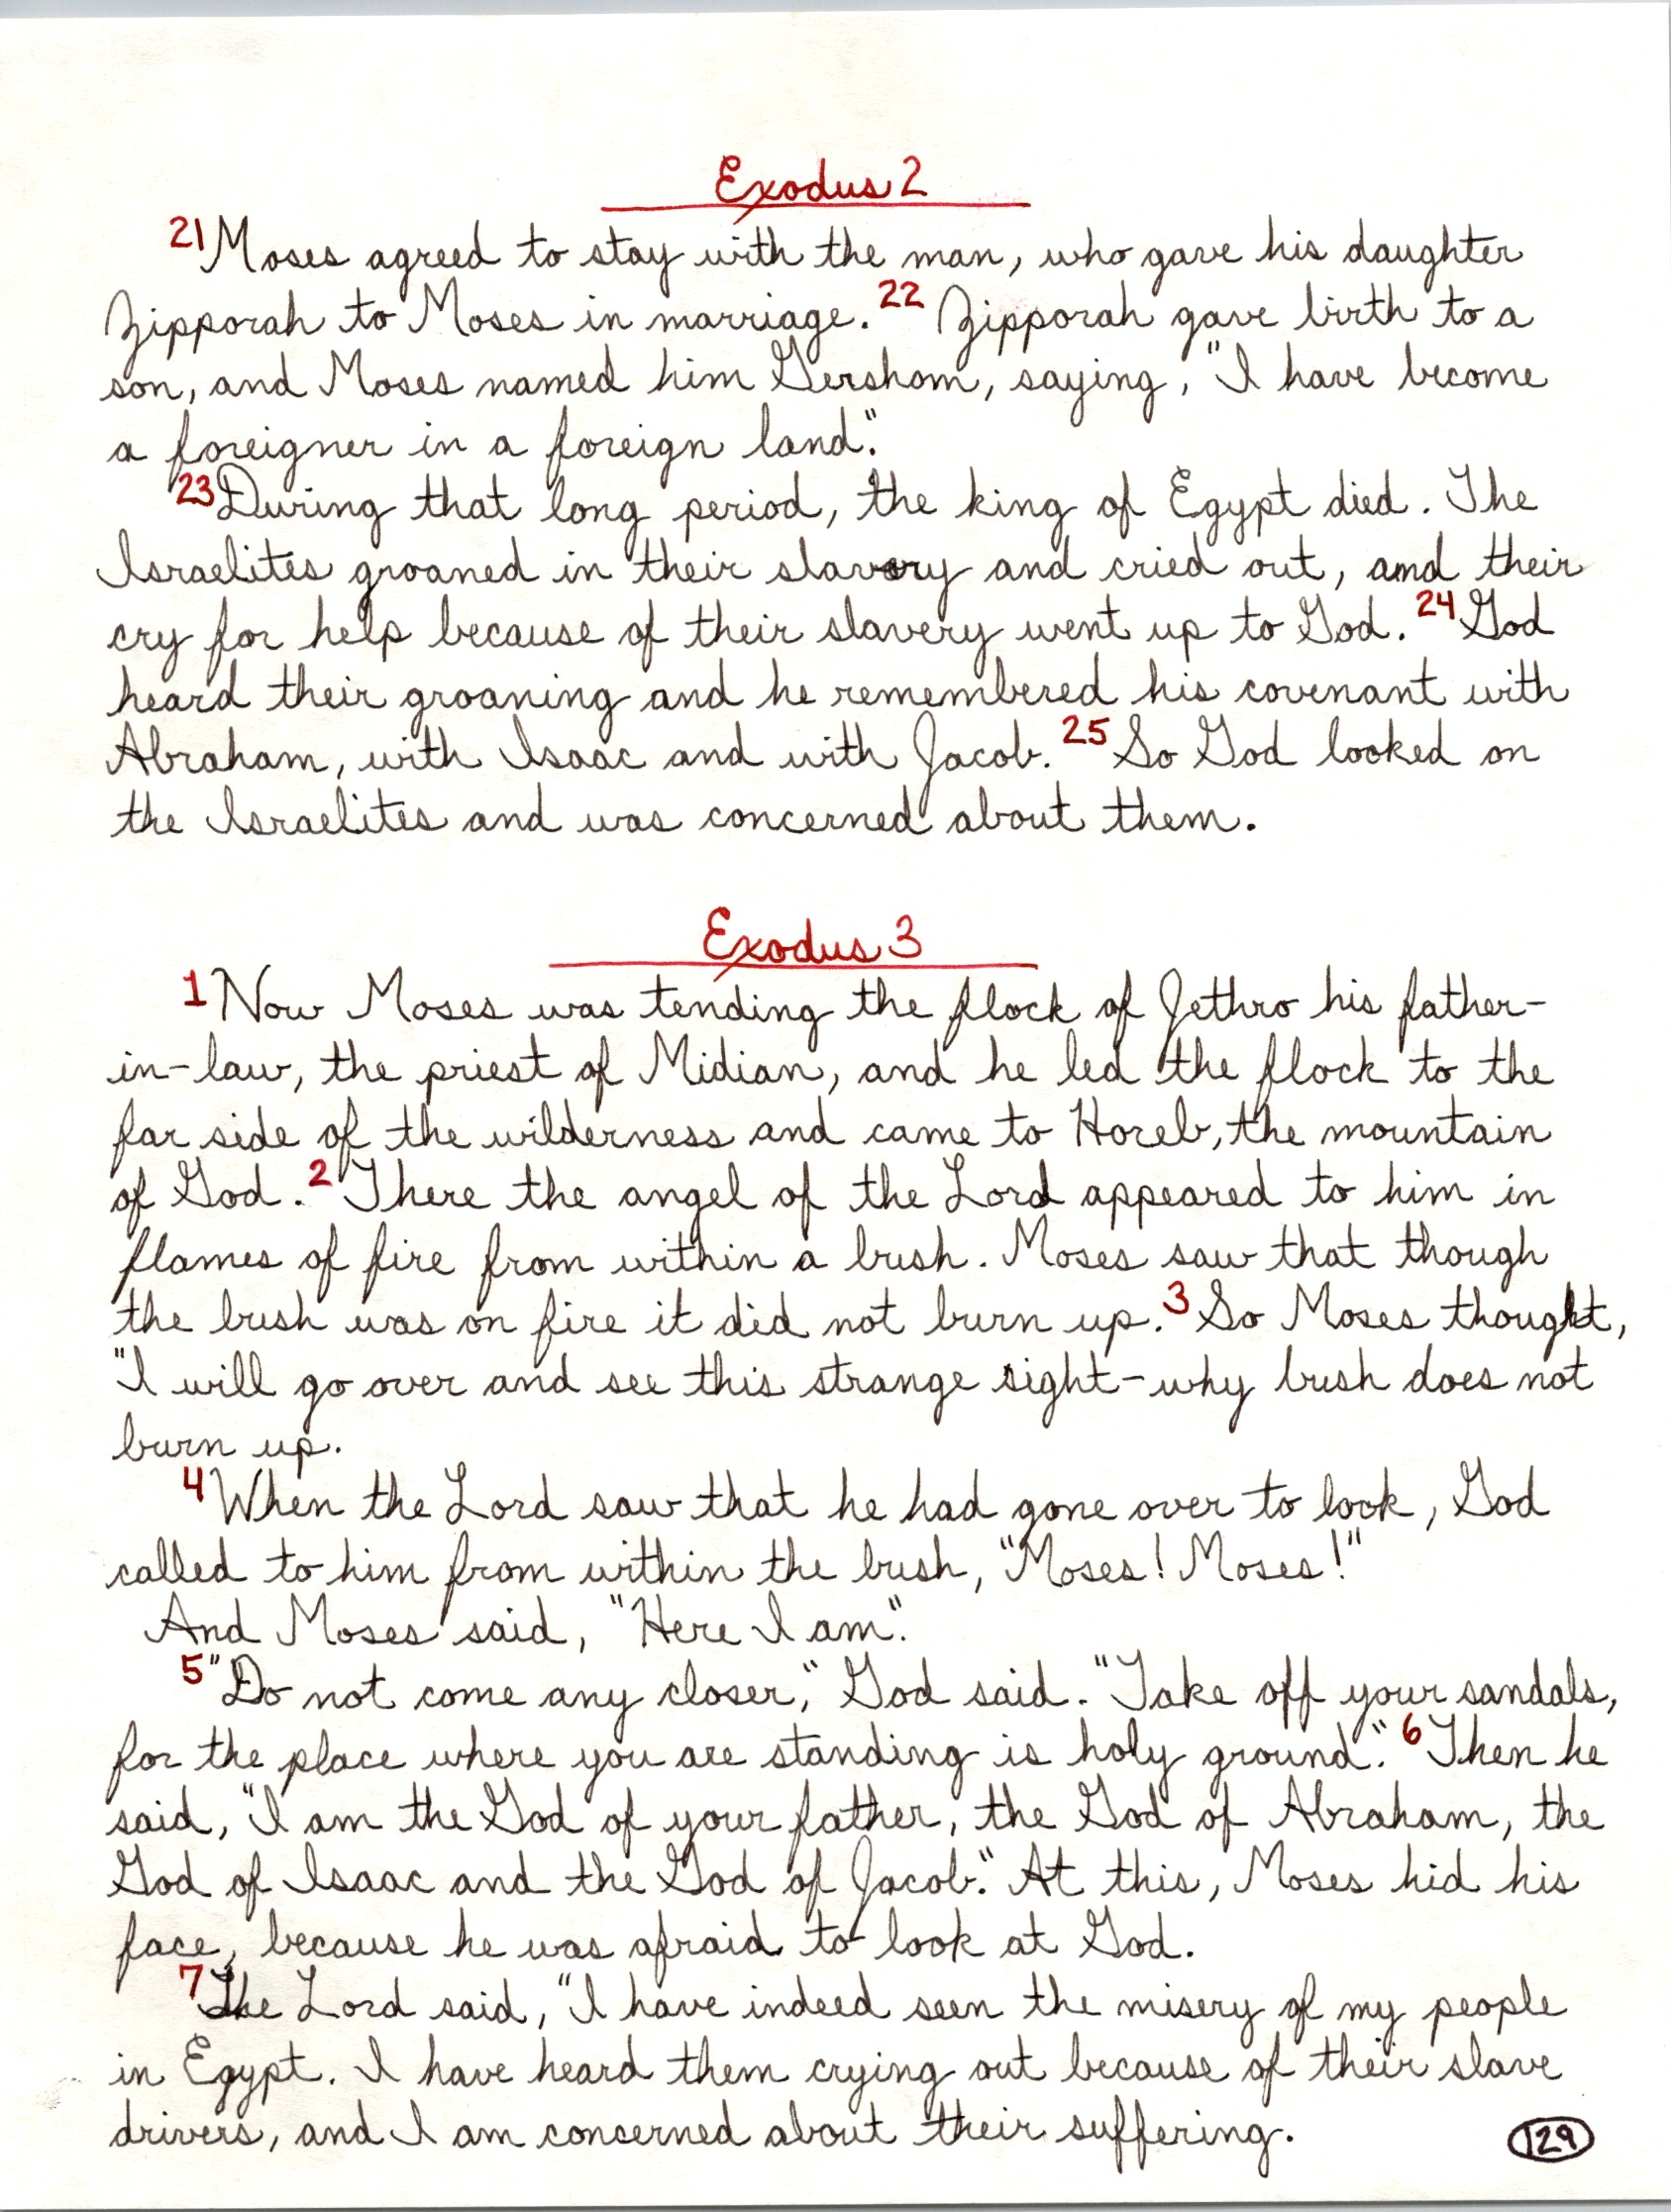 Exodus 2
21 Moses agreed to stay with the man, who gave his daughter
Zipporah to Moses in marriage. 22 Zipporah gave birth to a
son, and Moses named him Gershom, saying, "I have become
a foreigner in a foreign land."
23 During that long period, the king of Egypt died. The
Israelites groaned in their slavery and cried out, and their
cry for help because of their slavery went up to God. 24 God
heard their groaning and he remembered his covenant with
Abraham, with Isaac and with Jacob. 25 So God looked on
the Israelites and was concerned about them.
Exodus 3
1 Now Moses was tending the flock of Jethro his father-
in-law, the priest of Midian, and he led the flock to the
far side of the wilderness and came to Horeb, the mountain
of God. 2 There the angel of the Lord appeared to him in
flames of fire from within a bush. Moses saw that though
the bush was on fire it did not burn up. 3 So Moses thought,
"I will go over and see this strange sight-why bush does not
burn up.
4 When the Lord saw that he had gone over to look, God
called to him from within the bush, "Moses! Moses!"
And Moses said, "Here I am."
5 "Do not come any closer," God said. "Take off your sandals,
for the place where you are standing is holy ground." 6 Then he
said, "I am the God of your father, the God of Abraham, the
God of Isaac and the God of Jacob." At this, Moses hid his
face, because he was afraid to look at God.
7 The Lord said, "I have indeed seen the misery of my people
in Egypt. I have heard them crying out because of their slave
drivers, and I am concerned about their suffering.
129